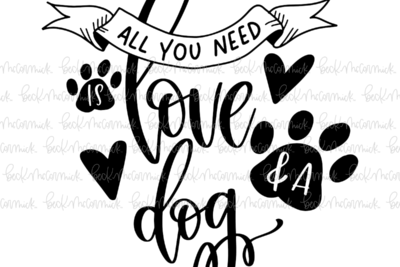 ALL YOU NEED
IS
love
& A
dog